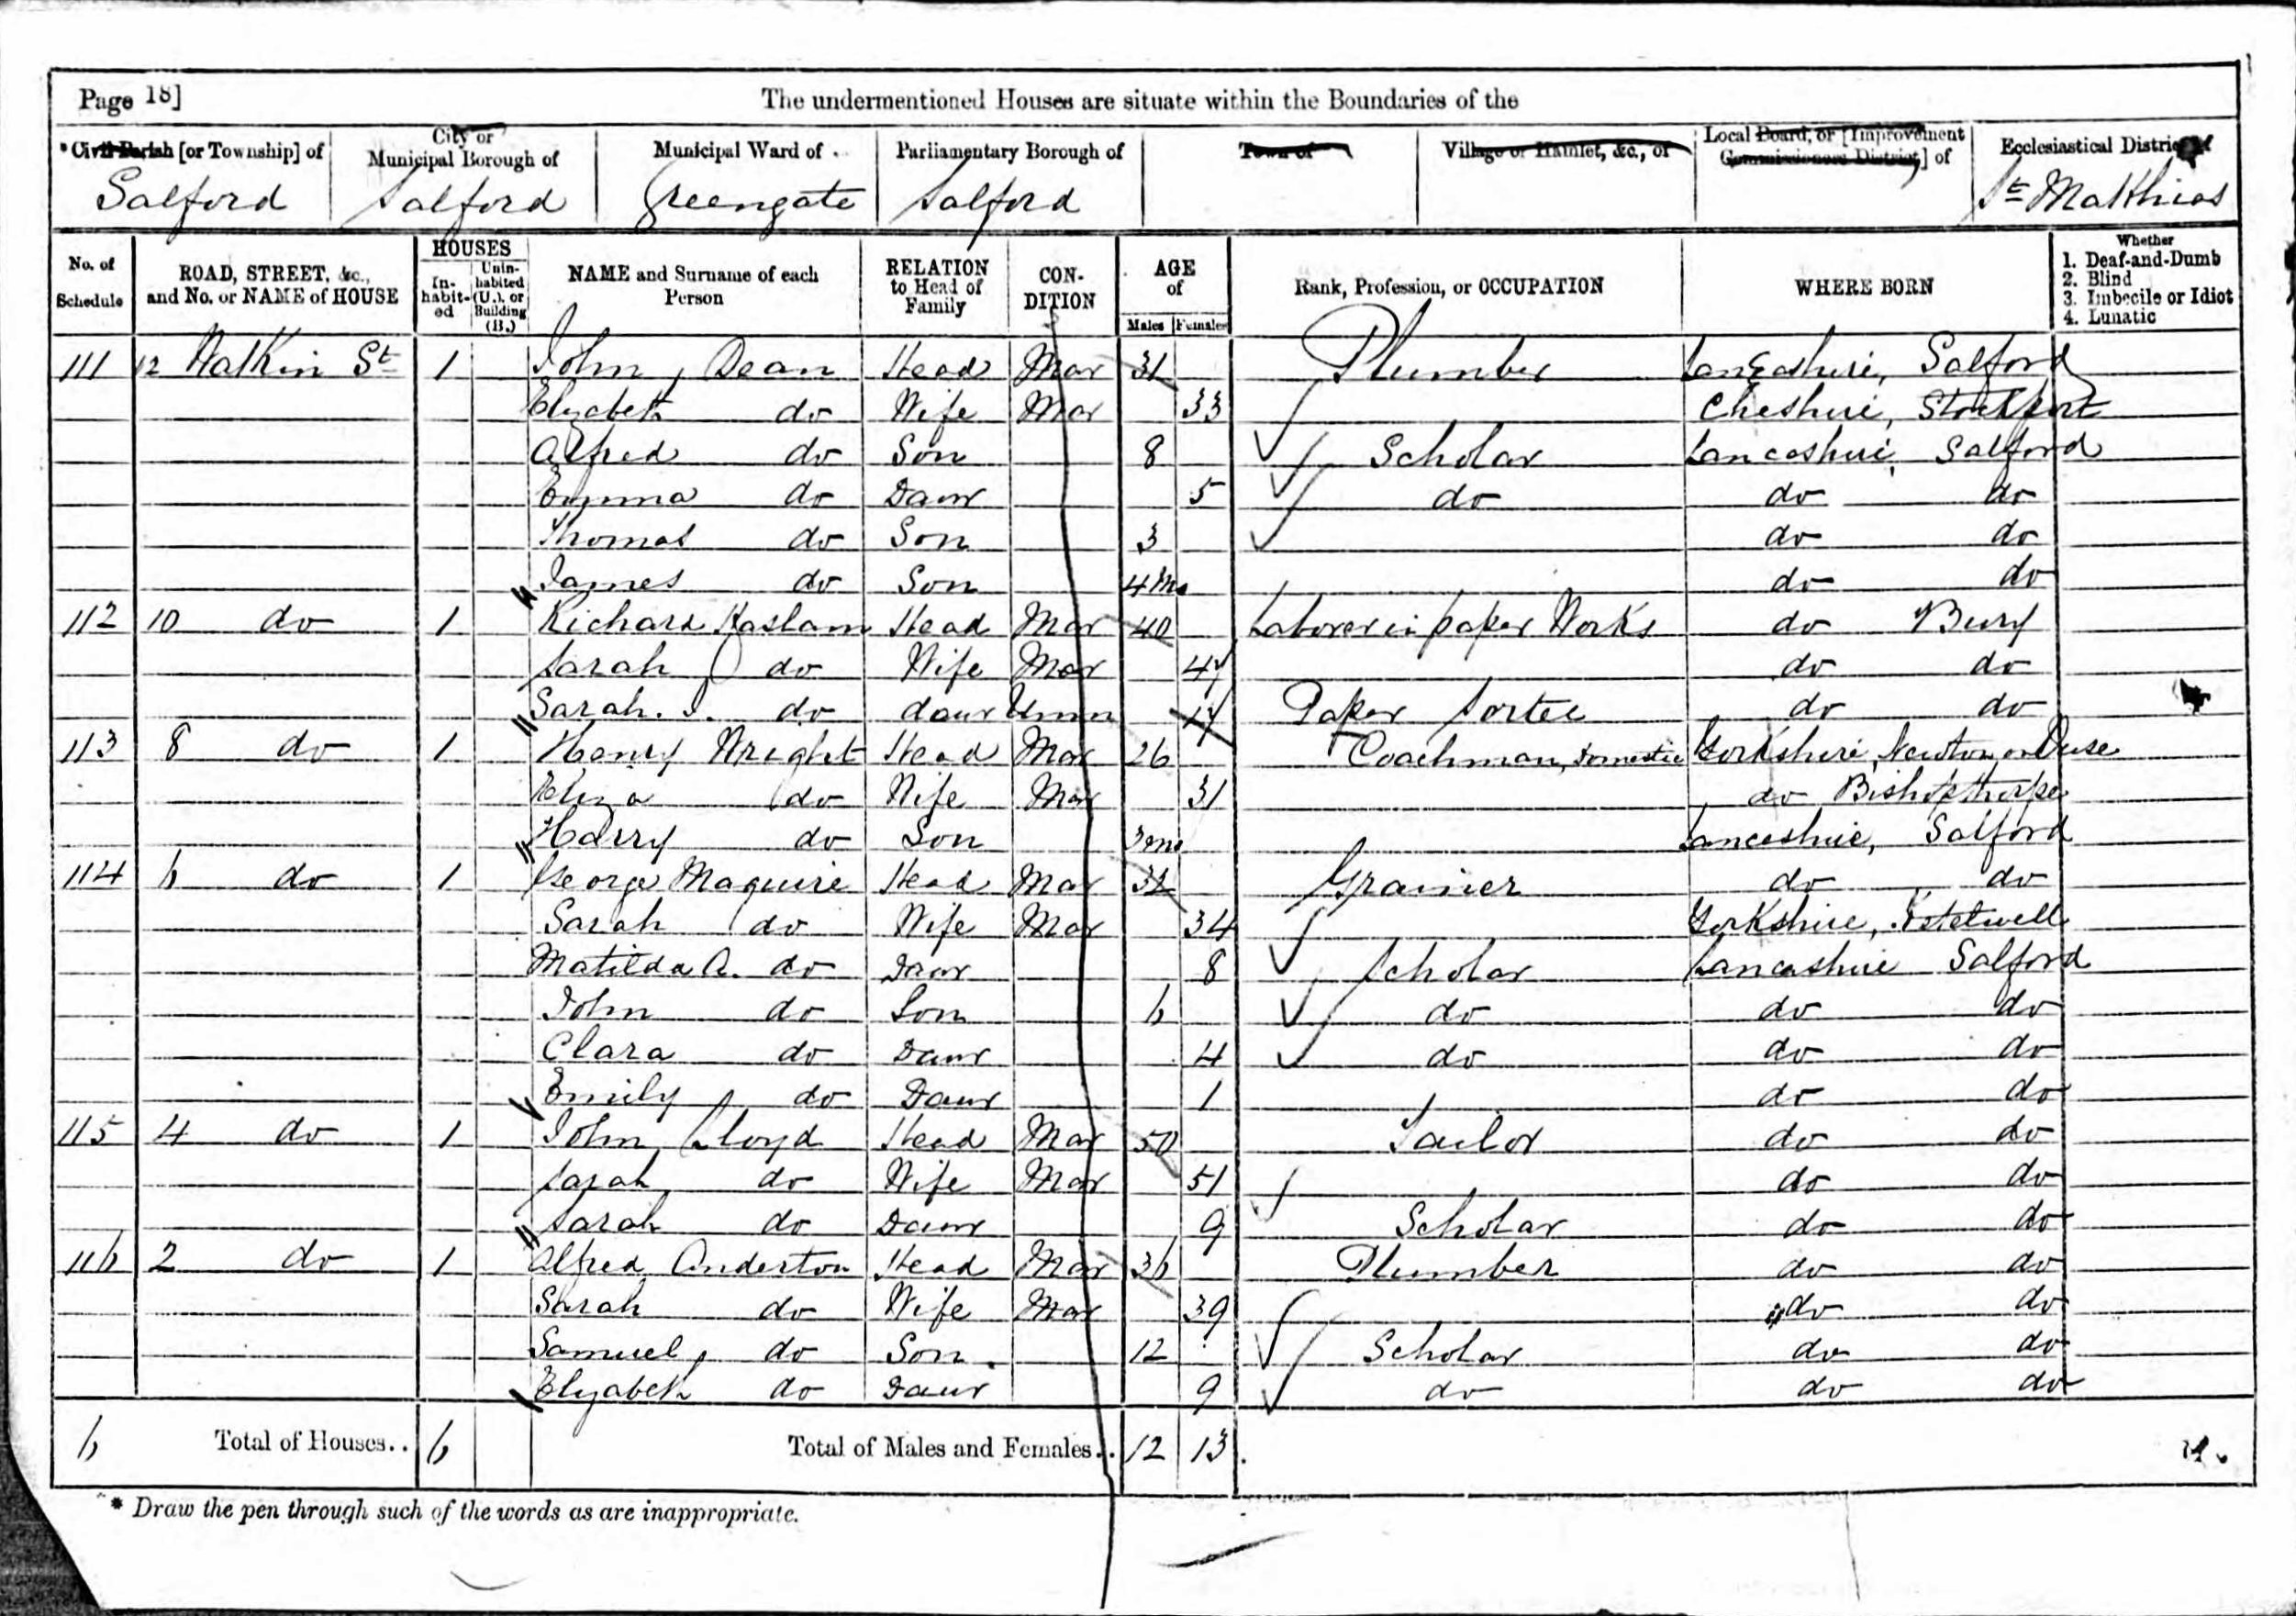 Page 18]
The undermentioned Houses are situate within the Boundaries of the
* Civil Parish [or Township] of
City or Municipal Borough of
Municipal Ward of
Parliamentary Borough of
Town of
Village or Hamlet, &c., of
Local Board, or [Improvement Commissioners District] of
Ecclesiastical District of
Salford Salford Greengate Salford St Matthias
No. of Schedule
ROAD, STREET, &c., and No. or NAME of HOUSE
HOUSES
In-habit-ed
Unin-habited (U.), or Building (B.)
NAME and Surname of each Person
RELATION to Head of Family
CON-DITION
AGE of
Males Females
Rank, Profession, or OCCUPATION
WHERE BORN
Whether
1. Deaf-and-Dumb
2. Blind
3. Imbecile or Idiot
4. Lunatic
111 12 Watkin St 1 John Dean Head Mar 31 Plumber Lancashire, Salford
Elizabeth do Wife Mar 33 Cheshire, Stockport
Alfred do Son 8 Scholar Lancashire, Salford
Emma do Daur 5 do do do
Thomas do Son 3 do do
James do Son 4 Mo do do
112 10 do 1 Richard Haslam Head Mar 40 Laborer in paper Works do Bury
Sarah do Wife Mar 47 do do
Sarah. J. do daur Unm 17 Paper Sorter do do
113 8 do 1 Henry Wright Head Mar 26 Coachman, Domestic Yorkshire, Newton on Ouse
Eliza do Wife Mar 31 do Bishopthorpe
Harry do Son 3 mo Lancashire, Salford
114 6 do 1 George Maguire Head Mar 32 Grainer do do
Sarah do Wife Mar 34 Yorkshire,
Matilda A. do Daur 8 Scholar Lancashire Salford
John do Son 6 do do do
Clara do Daur 4 do do do
Emily do Daur 1 do do
115 4 do 1 John Lloyd Head Mar 50 Tailor do do
Sarah do Wife Mar 51 do do
Sarah do Daur 9 Scholar do do
116 2 do 1 Alfred Anderton Head Mar 36 Plumber do do
Sarah do Wife Mar 39 do do
Samuel do Son 12 Scholar do do
Elizabeth do Daur 9 do do do
6 Total of Houses.. 6 Total of Males and Females.. 12 13
* Draw the pen through such of the words as are inappropriate.